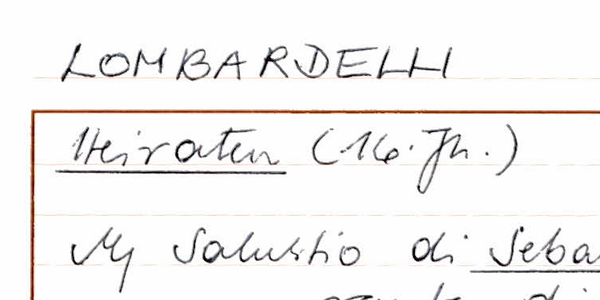 LOMBARDELLI
Heiraten (16. Jh.)
Mj Salustio di Seba
di